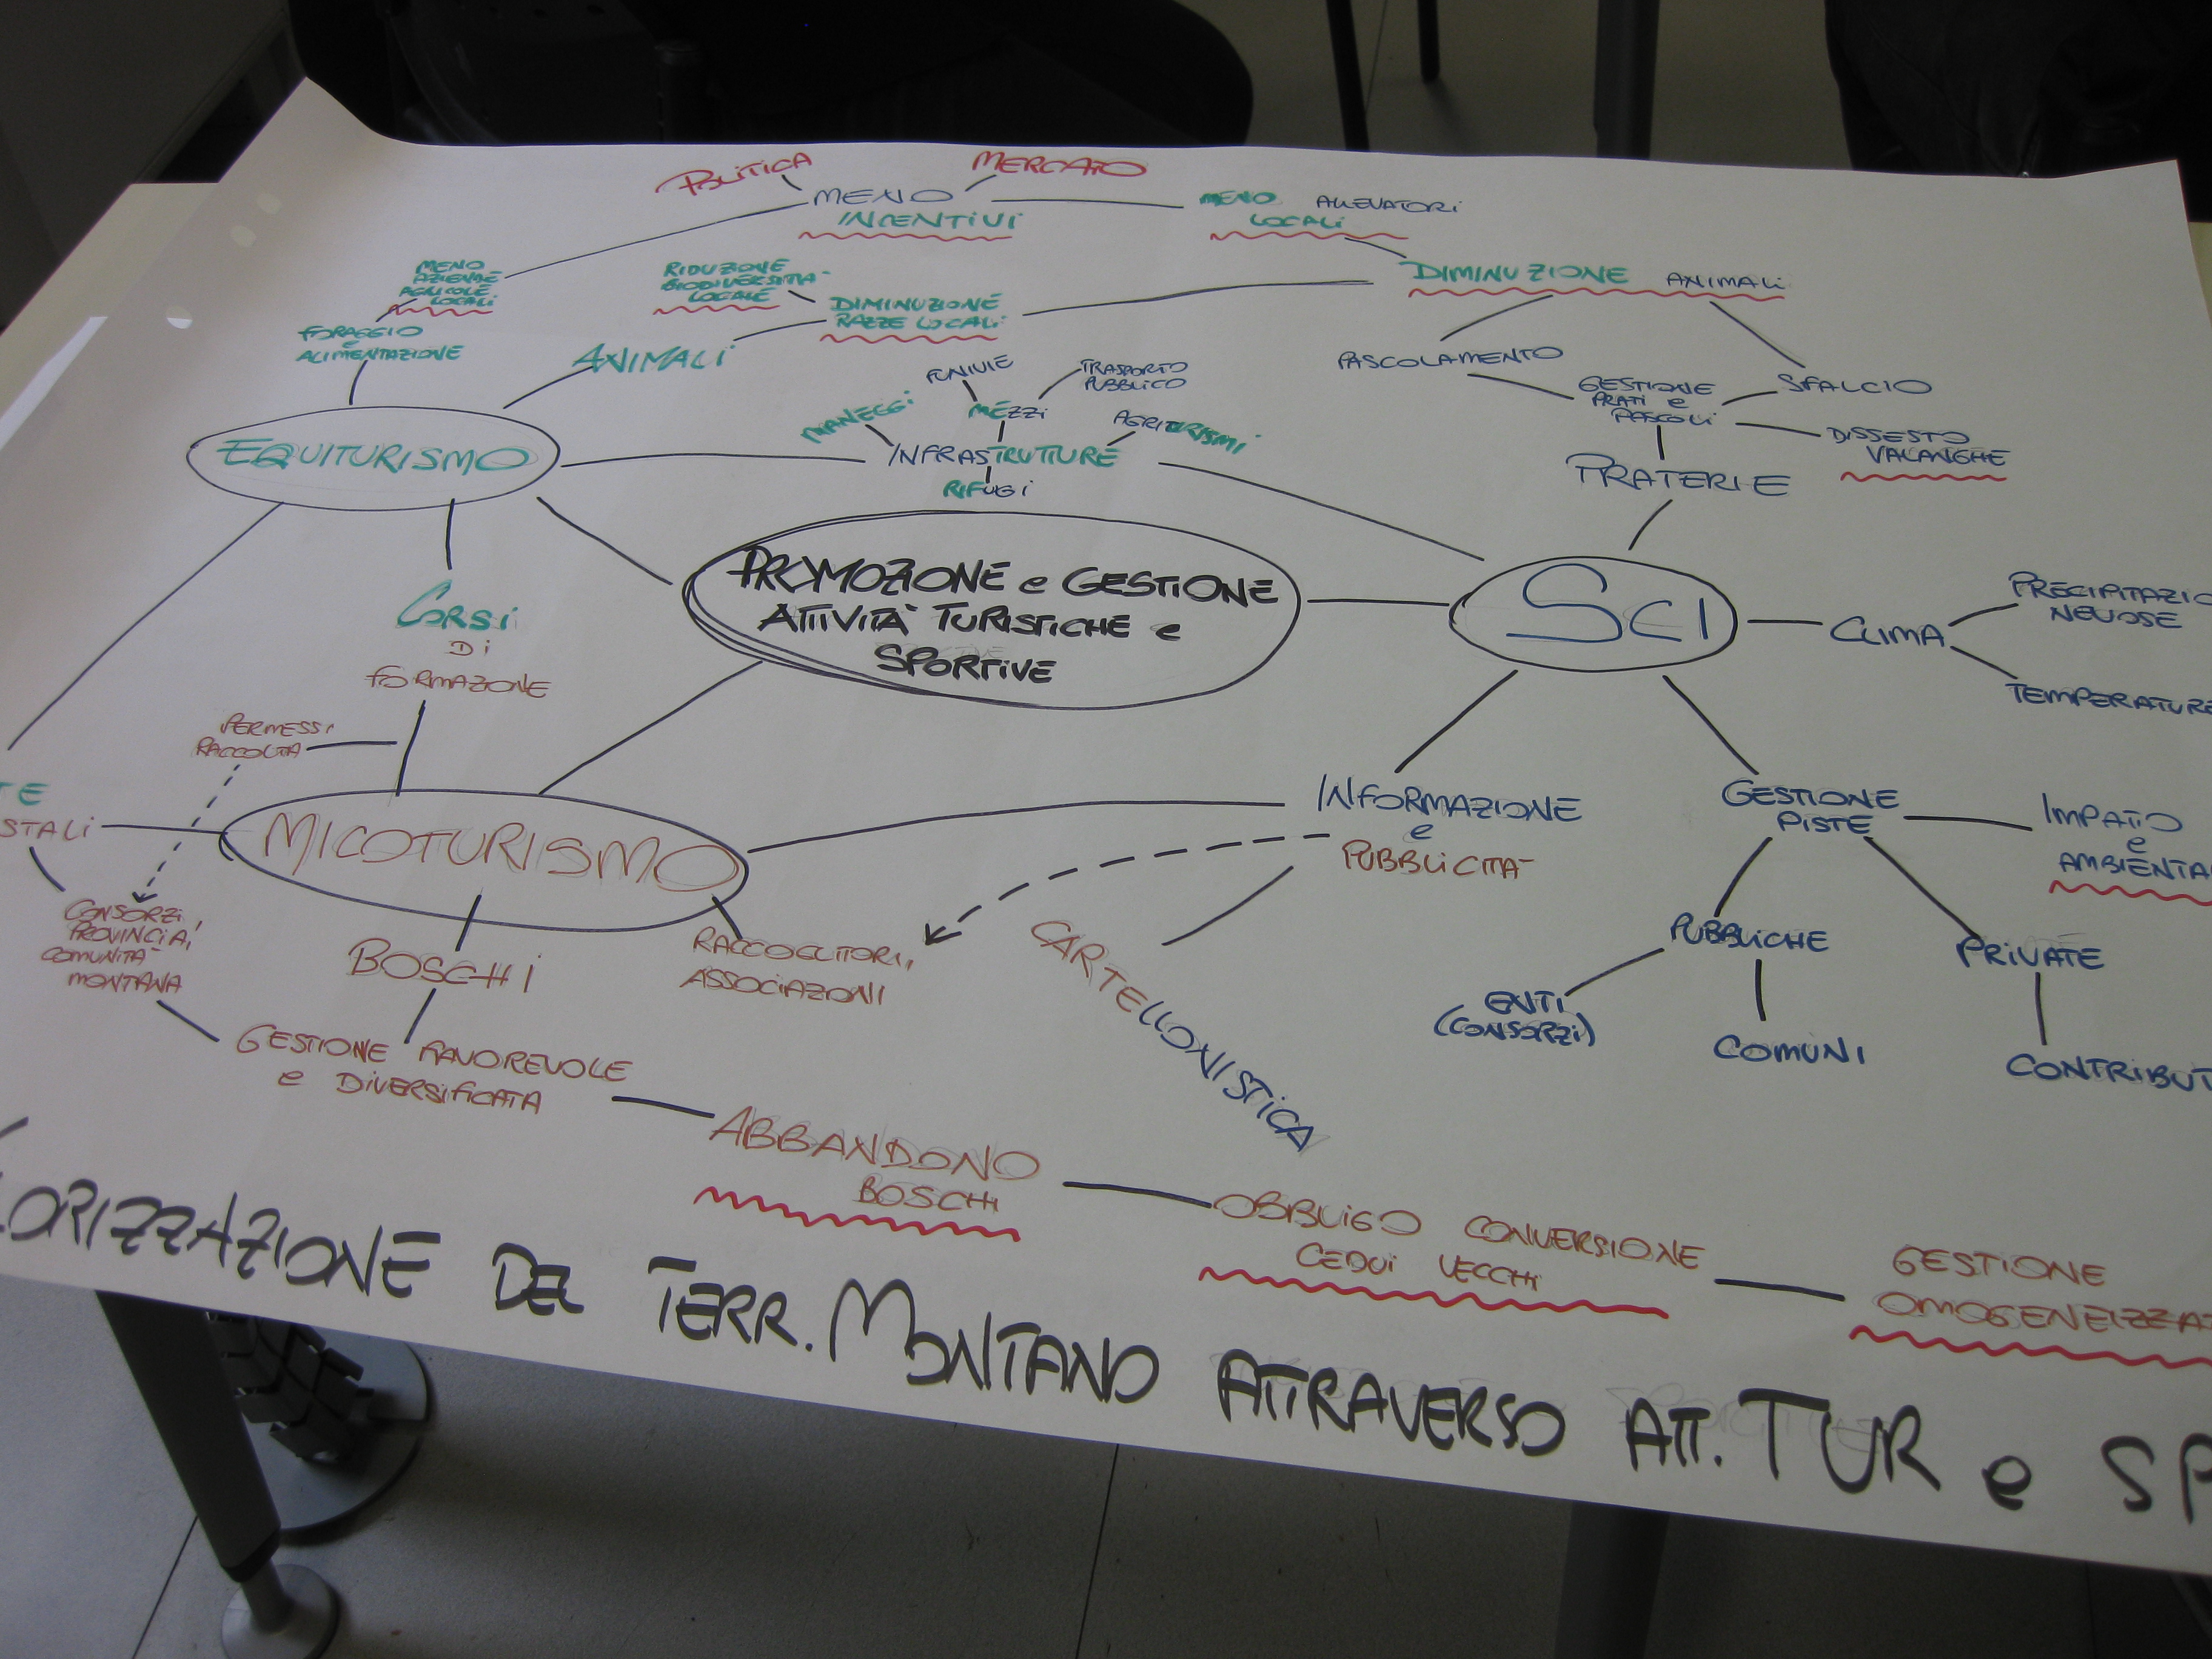 POLITICA
MERCATO
MENO
INCENTIVI
MENO ALLEVATORI
LOCALI
MENO
AZIENDE
AGRICOLE
LOCALI
RIDUZIONE
BIODIVERSITA'
LOCALE
DIMINUZIONE
RAZZE LOCALI
DIMINUZIONE ANIMALI
FORAGGIO
e
ALIMENTAZIONE
ANIMALI
PASCOLAMENTO
SFALCIO
GESTIONE
PRATI e
PASCOLI
DISSESTO
VALANGHE
PRATERIE
FUNIVIE
TRASPORTO
PUBBLICO
MANEGGI
MEZZI
AGRITURISMI
INFRASTRUTTURE
RIFUGI
EQUITURISMO
PROMOZIONE e GESTIONE
ATTIVITÀ TURISTICHE e
SPORTIVE
SCI
CLIMA
PRECIPITAZIO
NEVOSE
TEMPERATURE
CORSI
DI
FORMAZIONE
PERMESSI
RACCOLTA
TE
STALI
MICOTURISMO
INFORMAZIONE
e
PUBBLICITA'
GESTIONE
PISTE
IMPATTO
e
AMBIENTA
CONSORZI,
PROVINCIA,
COMUNITA'
MONTANA
BOSCHI
RACCOGLITORI,
ASSOCIAZIONI
CARTELLONISTICA
PUBBLICHE
PRIVATE
ENTI
(CONSORZI)
COMUNI
CONTRIBUT
GESTIONE FAVOREVOLE
e DIVERSIFICATA
ABBANDONO
BOSCHI
OBBLIGO CONVERSIONE
CEDUI VECCHI
GESTIONE
OMOGENEIZZA
LORIZZAZIONE DEL TERR. MONTANO ATTRAVERSO ATT. TUR e SP